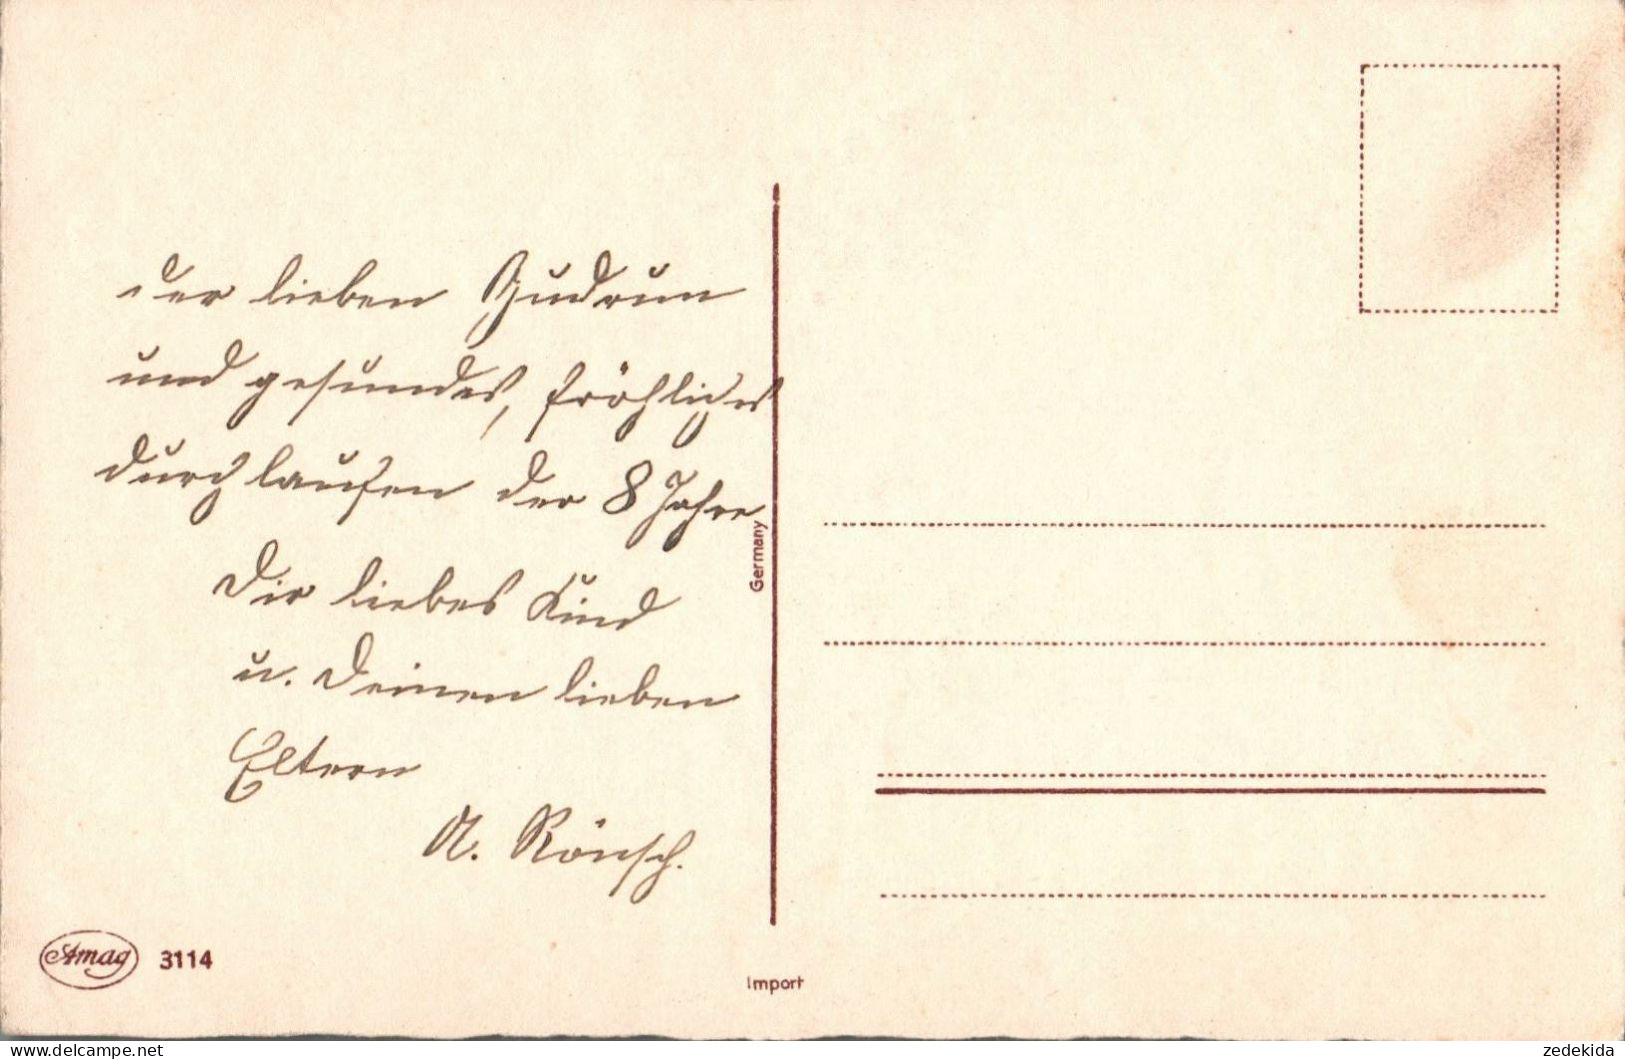 der lieben Gudrun
und gesundes, fröhliches
durchlaufen der 8 Jahre
Dir liebes Kind
u. Deinen lieben
Eltern
A. Rönsch.
Germany
Amag 3114
Import
zedekida